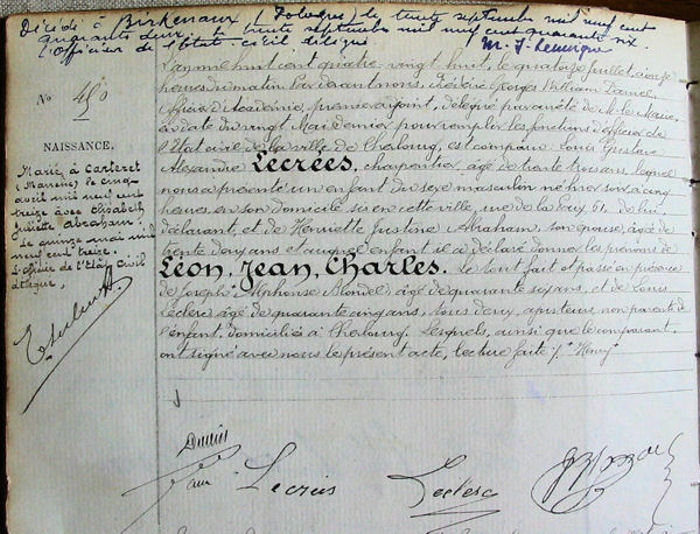 Décédé à Birkenaux (Pologne) le trente septembre mil neuf cent
quarante deux. Le trente septembre mil neuf cent quarante six.
L'officier de l'Etat-civil délégué
No 450
NAISSANCE.
Marié à Carteret
(Manche) le cinq
avril mil neuf cent
treize avec Elisabeth
Juliette Abraham.
Le quinze mai mil
neuf cent treize.
L'officier de l'Etat Civil
délégué,
L'an mil huit cent quatre-vingt huit, le quatorze juillet, à onze
heures du matin Par devant nous, Frédéric Georges William
Officier d'Académie, premier adjoint, délégué par arrêté de M. le Maire,
en date du vingt Mai dernier pour remplir les fonctions d'officier de
l'Etat civil de la ville de Cherbourg, est comparu Louis Gustave
Alexandre LECRÉES, charpentier, âgé de trente trois ans, lequel
nous a présenté un enfant du sexe masculin né hier soir à cinq
heures en son domicile sis en cette ville, rue de la Paix 61, de lui
déclarant, et de Henriette Justine Abraham, son épouse, âgée de
trente deux ans et auquel enfant il a déclaré donner les prénoms de
Léon, Jean, Charles. Le tout fait et passé en présence
de Joseph Alphonse Blondel, âgé de quarante six ans, et de Louis
Leclerc âgé de quarante cinq ans, tous deux, ajusteurs non parents de
l'enfant, domiciliés à Cherbourg. Lesquels, ainsi que le comparant
ont signé avec nous le présent acte, lecture faite
Lecrées
Leclerc